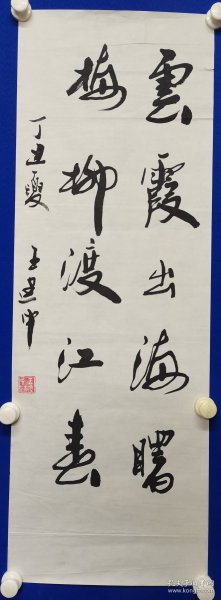 雲霞出海曙
梅柳渡江春
丁丑夏 王建中